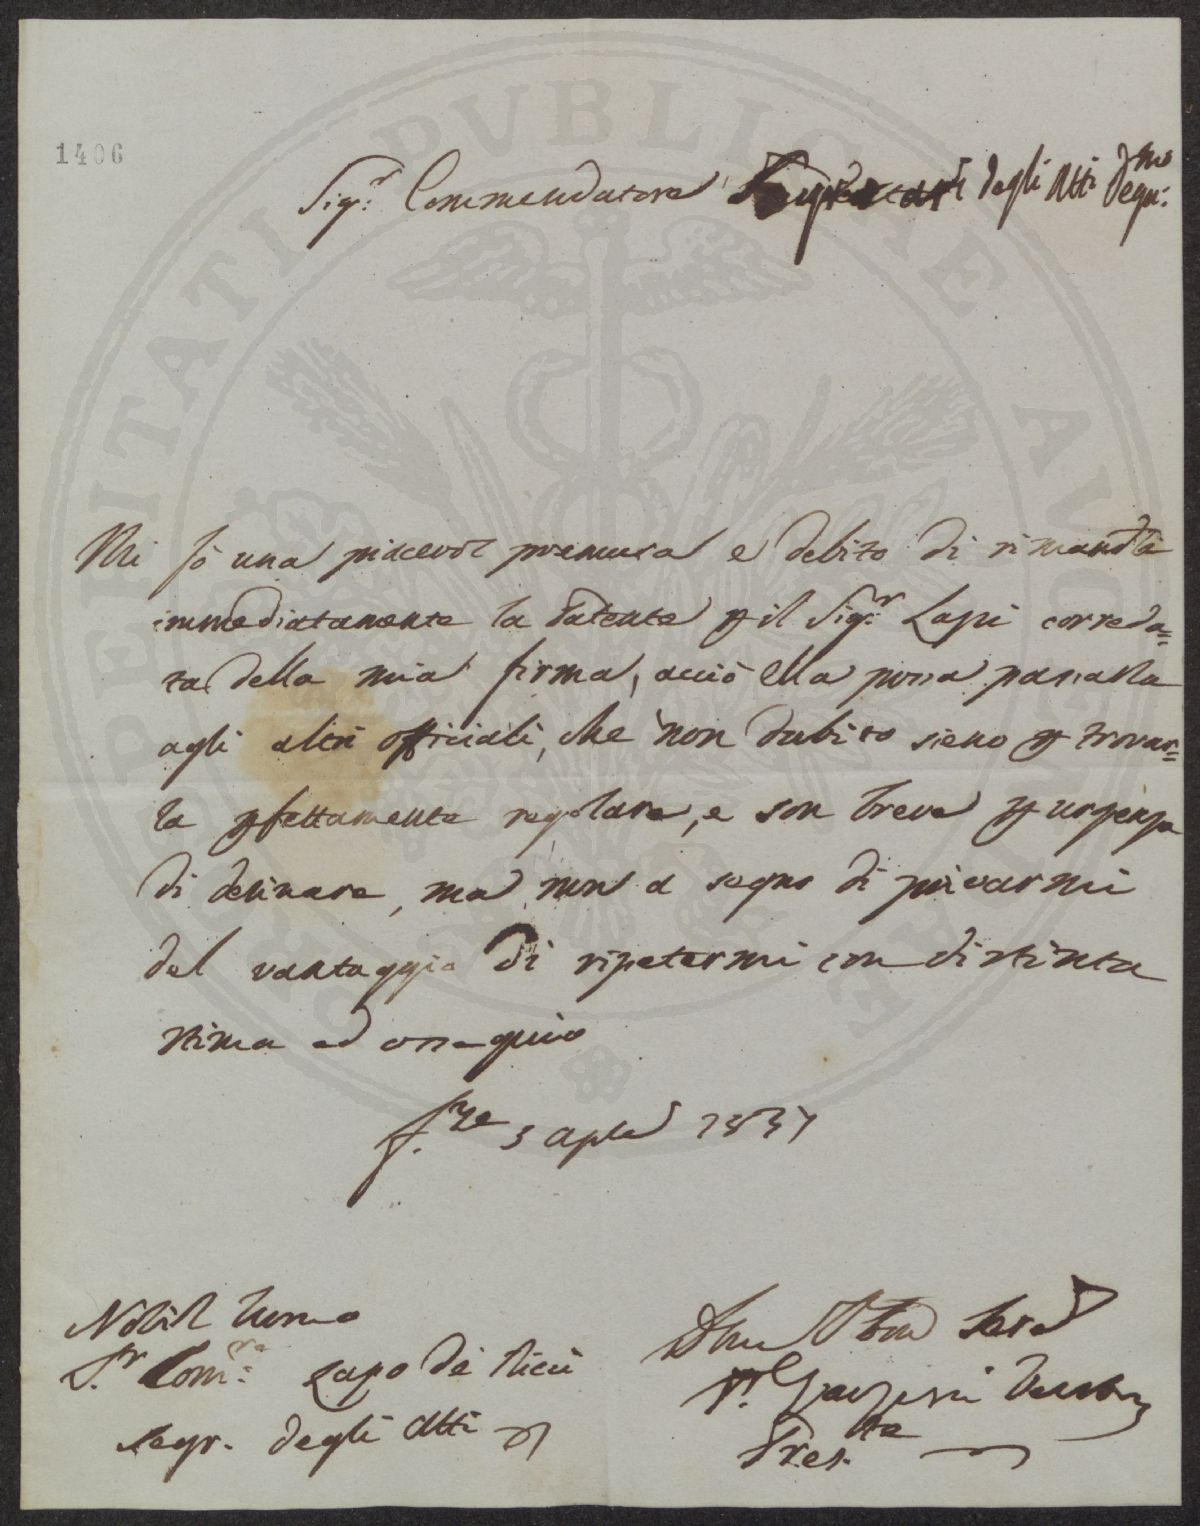 1406
Sig.r Commendatore Segretario degli Atti
Mi fò una piacevole premura e debito di rimandle
immediatamente la Patente p il Sig.r Lapi correda=
ta della mia firma, acciò Ella possa passarla
agli altri Officiali, che non dubito sieno p trovar=
la pfettamente regolare, e son breve p urgenza
di desinare, ma non a segno di privarmi
del vantaggio di ripetermi con distinta
stima ed ossequio
3 Aple 1837
Nobil Uomo
S.r Com.re Lapo de Ricci
Segr. degli Atti
Serv
Pres.te
PROSPERITATI PUBLICAE AUGENDAE